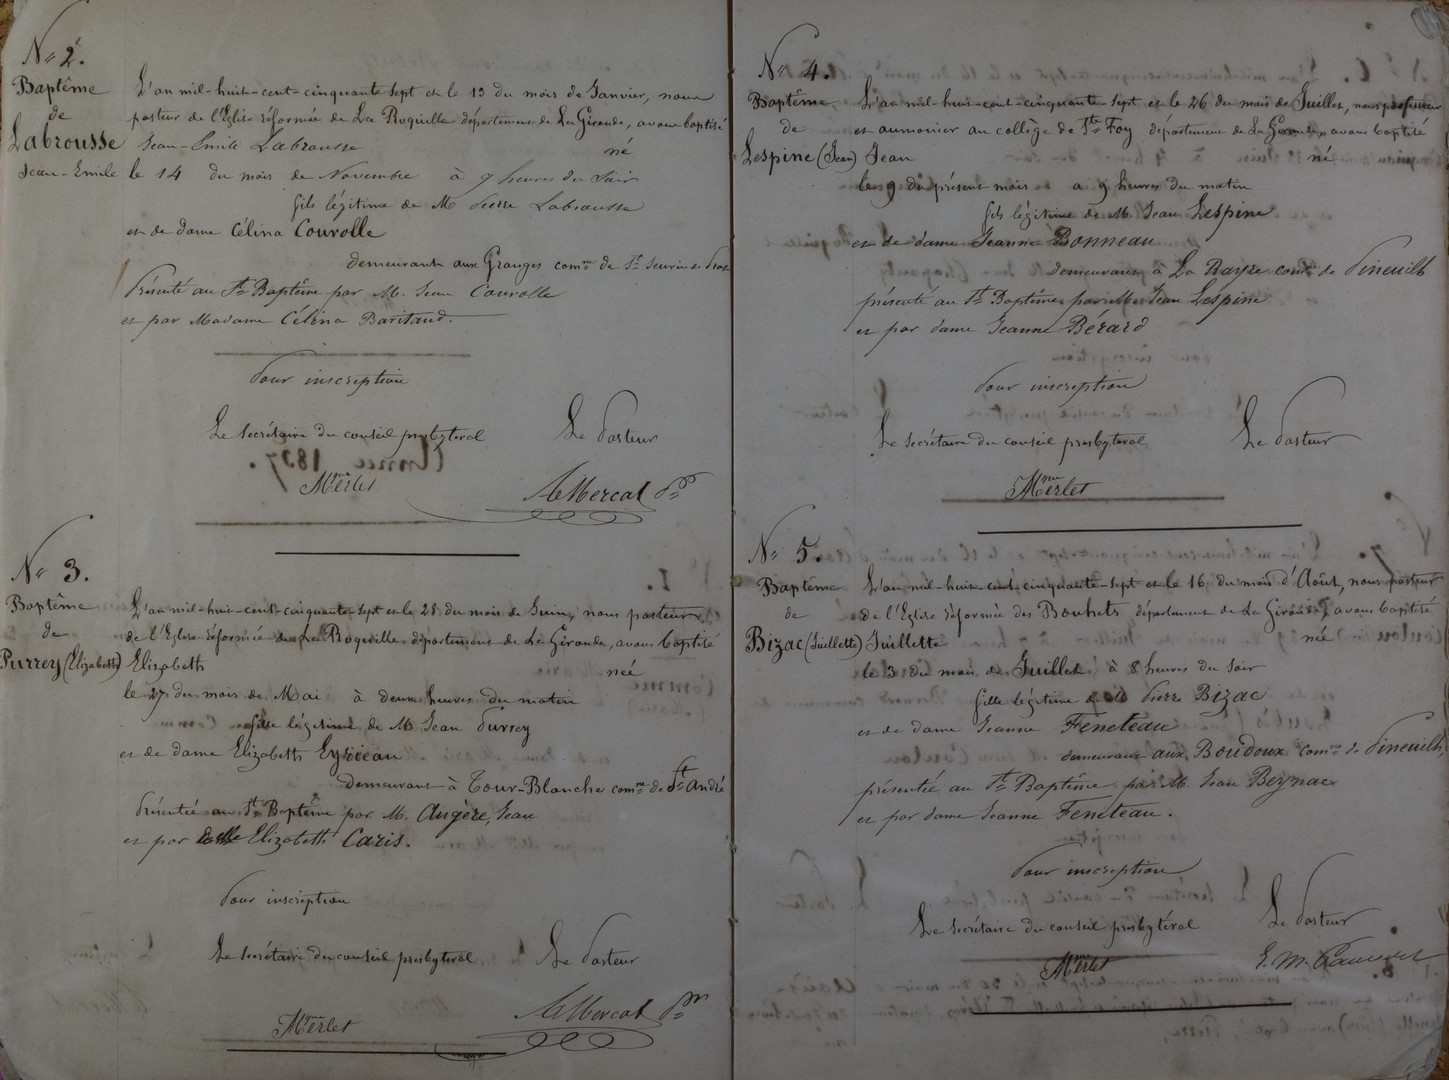 N° 2.
Baptême
de
Labrousse
Jean-Emile
L'an mil-huit-cent-cinquante sept et le 13 du mois de Janvier, nous
pasteur de l'Eglise réformée de La Roquille département de La Gironde, avons baptisé
Jean-Emile Labrousse né
le 14 du mois de Novembre à 9 heures du Soir
fils légitime de M Pierre Labrousse
et de dame Célina Courolle
demeurant aux Granges comne de St Seurin de Prats
Présenté au St Baptême par M. Jean Courolle
et par Madame Célina Baritaud.
Pour inscription
Le secrétaire du conseil presbytéral Le Pasteur
Merlet
N° 3.
Baptême
de
Purrey (Elizabeth)
L'an mil-huit-cent-cinquante-sept et le 28 du mois de Juin, nous pasteur
de l'Eglise réformée de La Roquille département de La Gironde, avons baptisé
Elizabeth née
le 27 du mois de Mai à deux heures du matin
fille légitime de M Jean Purrey
et de dame Elizabeth Eyrieau
demeurant à Tour-Blanche comne de St André
Présentée au St Baptême par M. Augère, Jean
et par Elizabeth Caris.
Pour inscription
Le secrétaire du conseil presbytéral Le Pasteur
Merlet
N° 4.
Baptême
de
Lespine (Jean)
L'an mil-huit-cent-cinquante sept et le 26 du mois de Juillet, nous professeur
et aumonier au collège de Ste Foy département de La Gironde, avons baptisé
Jean né
le 9 du présent mois a 9 heures du matin
fils légitime de M. Jean Lespine
et de dame Jeanne Bonneau
demeurant à La Rayre comne de Pineuilh
présenté au St Baptême par M. Jean Lespine
et par dame Jeanne Bérard
Pour inscription
Le secrétaire du conseil presbytéral Le Pasteur
Merlet
N° 5.
Baptême
de
Bizac (Juillette)
L'an mil-huit-cent-cinquante-sept et le 16 du mois d'Août, nous pasteur
de l'Eglise réformée des Bouhets département de La Gironde, avons baptisé
Juillette née
le 3 du mois de Juillet à 8 heures du soir
fille légitime de Pierre Bizac
et de dame Jeanne Feneteau
demeurant aux Boudoux comne de Pineuilh,
présentée au St Baptême par M. Jean Beynac
et par dame Jeanne Feneteau.
Pour inscription
Le secrétaire du conseil presbytéral Le Pasteur
Merlet